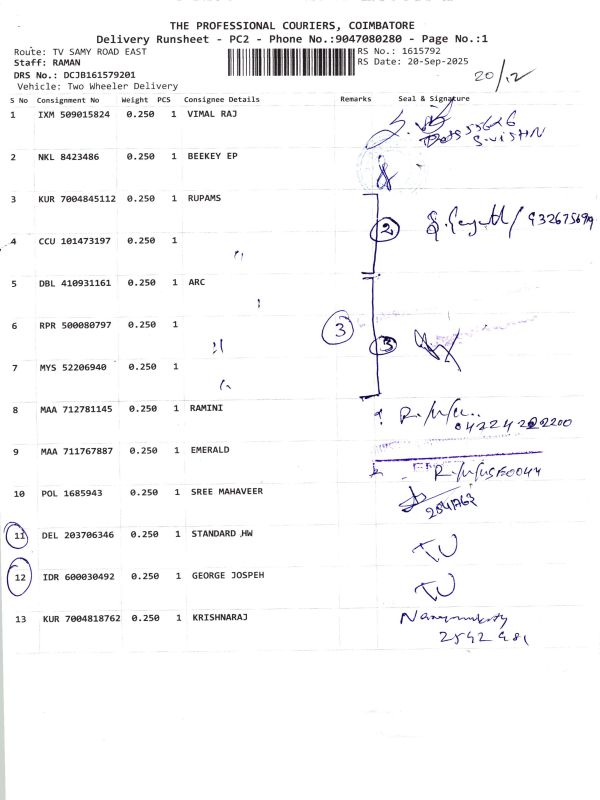 THE PROFESSIONAL COURIERS, COIMBATORE
Delivery Runsheet - PC2 - Phone No.:9047080280 - Page No.:1
Route: TV SAMY ROAD EAST RS No.: 1615792
Staff: RAMAN RS Date: 20-Sep-2025
DRS No.: DCJB161579201
Vehicle: Two Wheeler Delivery
20/12
S No Consignment No Weight PCS Consignee Details Remarks Seal & Signature
1 IXM 509015824 0.250 1 VIMAL RAJ
2 NKL 8423486 0.250 1 BEEKEY EP
3 KUR 7004845112 0.250 1 RUPAMS
2
4 CCU 101473197 0.250 1
5 DBL 410931161 0.250 1 ARC
6 RPR 500080797 0.250 1
3 3
7 MYS 52206940 0.250 1
8 MAA 712781145 0.250 1 RAMINI
9 MAA 711767887 0.250 1 EMERALD
10 POL 1685943 0.250 1 SREE MAHAVEER
11 DEL 203706346 0.250 1 STANDARD HW
12 IDR 600030492 0.250 1 GEORGE JOSPEH
13 KUR 7004818762 0.250 1 KRISHNARAJ